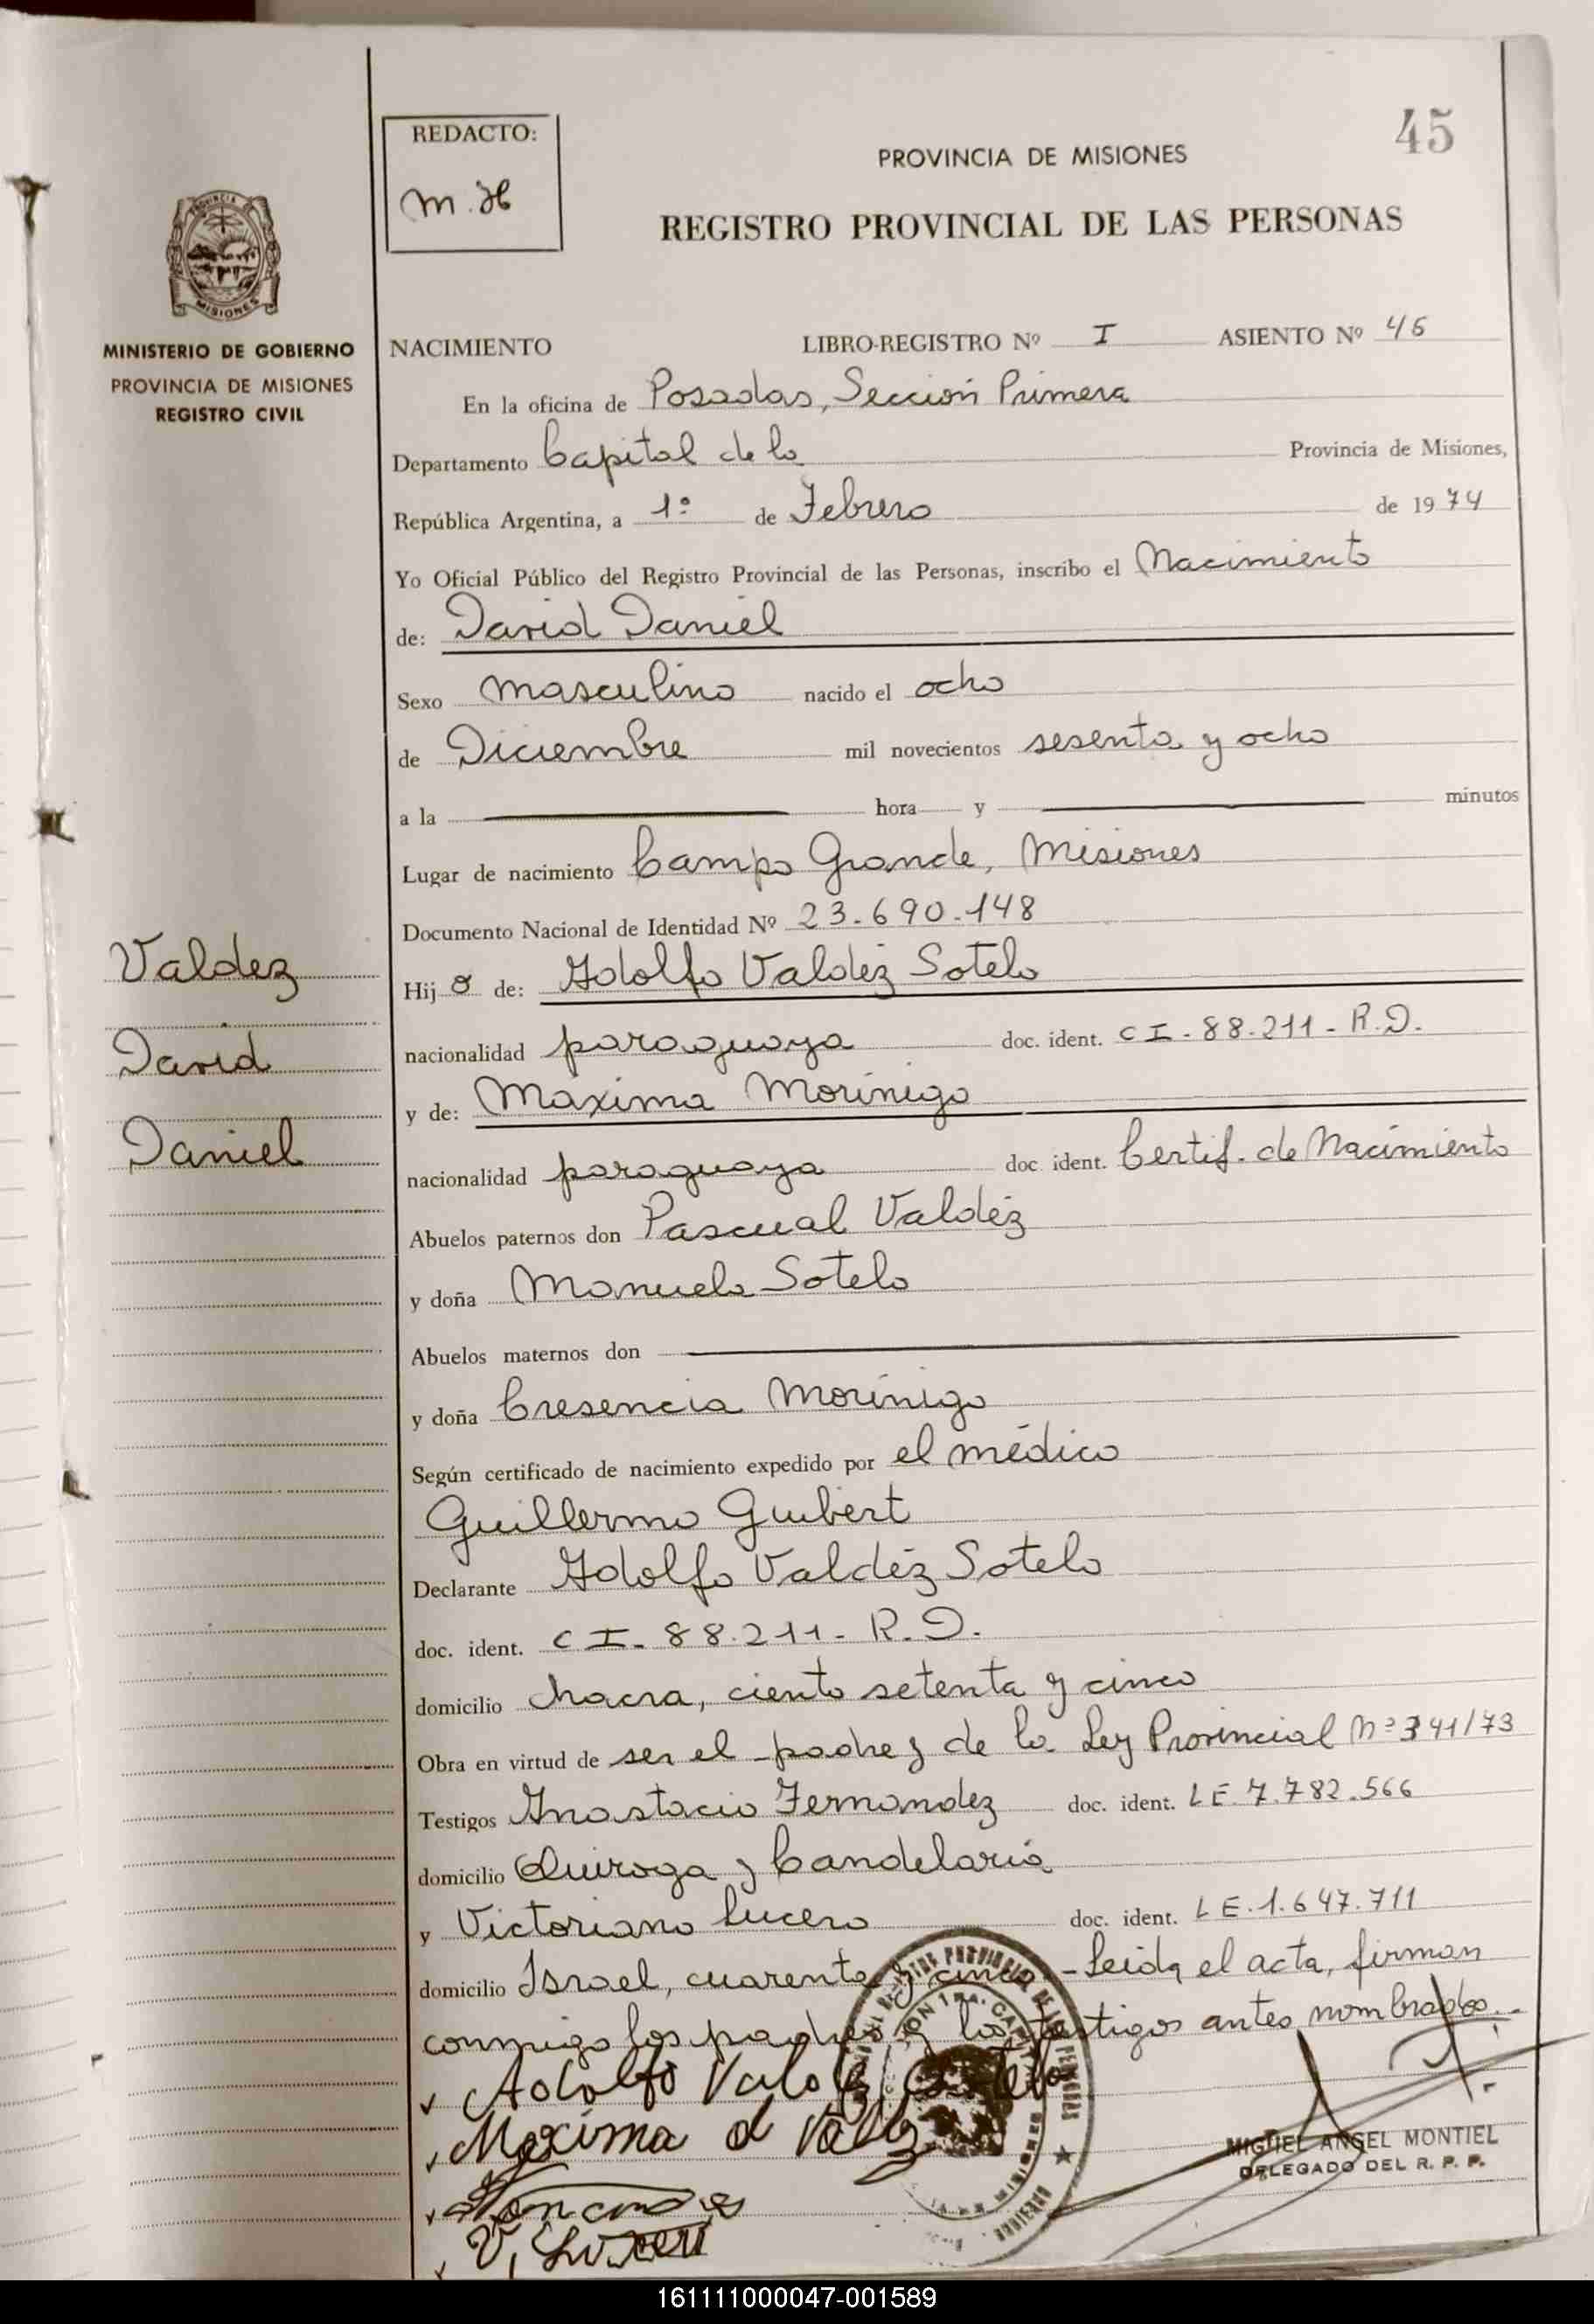 45
REDACTO:
M.H
PROVINCIA DE MISIONES
REGISTRO PROVINCIAL DE LAS PERSONAS
PROVINCIA DE
MISIONES
MINISTERIO DE GOBIERNO
PROVINCIA DE MISIONES
REGISTRO CIVIL
NACIMIENTO LIBRO-REGISTRO Nº I ASIENTO Nº 45
En la oficina de Posadas, Sección Primera
Departamento Capital de la Provincia de Misiones,
República Argentina, a 1º de Febrero de 1974
Yo Oficial Público del Registro Provincial de las Personas, inscribo el Nacimiento
de: David Daniel
Sexo masculino nacido el ocho
de Diciembre mil novecientos sesenta y ocho
a la hora y minutos
Lugar de nacimiento Campo Grande, Misiones
Documento Nacional de Identidad Nº 23.690.148
Valdez
David
Daniel
Hijo de: Adolfo Valdéz Sotelo
nacionalidad paraguaya doc. ident. CI-88.211-R.D.
y de: Máxima Morínigo
nacionalidad paraguaya doc ident. Certif. de Nacimiento
Abuelos paternos don Pascual Valdéz
y doña Manuela Sotelo
Abuelos maternos don
y doña Cresencia Morínigo
Según certificado de nacimiento expedido por el médico
Guillermo Guibert
Declarante Adolfo Valdéz Sotelo
doc. ident. CI-88.211-R.D.
domicilio chacra, ciento setenta y cinco
Obra en virtud de ser el padre y de la Ley Provincial Nº 341/73
Testigos Anastacio Fernandez doc. ident. LE.7.782.566
domicilio Quiroga y Candelaria
y Victoriano Lucero doc. ident. LE.1.647.711
domicilio Israel, cuarenta y cinco - Leida el acta, firman
conmigo los padres y los testigos antes nombrados.-
Adolfo Valdez Sotelo
Maxima d Valdez
V. Lucero
MIGUEL ANGEL MONTIEL
DELEGADO DEL R. P. P.
161111000047-001589